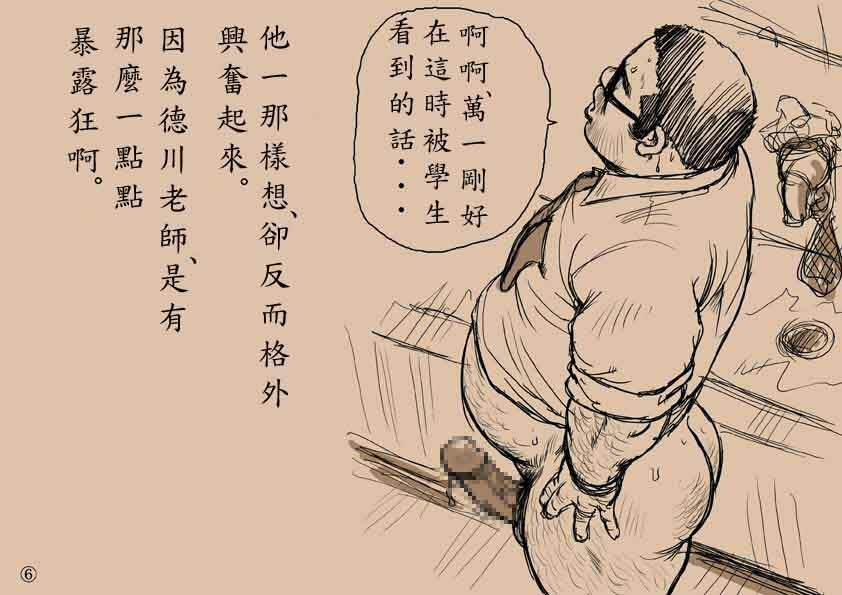 啊啊、萬一剛好
在這時被學生
看到的話・・・
他一那樣想、卻反而格外
興奮起來。
因為德川老師、是有
那麼一點點
暴露狂啊。
⑥